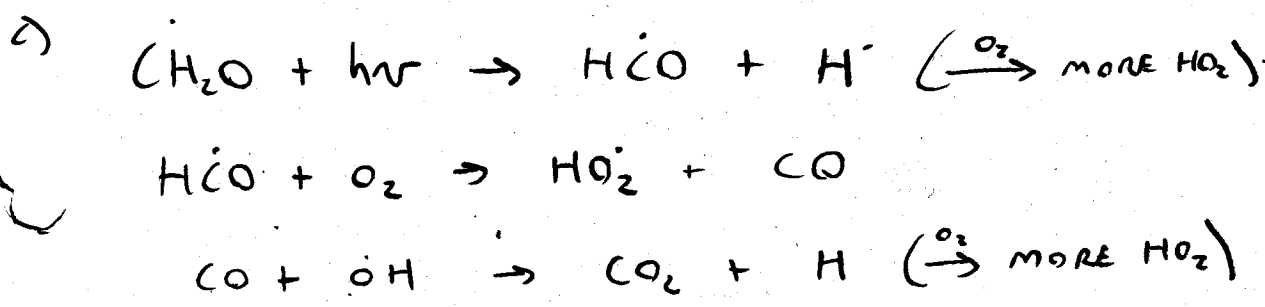 c) CH₂O + hν → HĊO + H· (O₂→ MORE HO₂).
HĊO + O₂ → HȮ₂ + CO
CO + ȮH → CO₂ + H (O₂→ MORE HO₂)